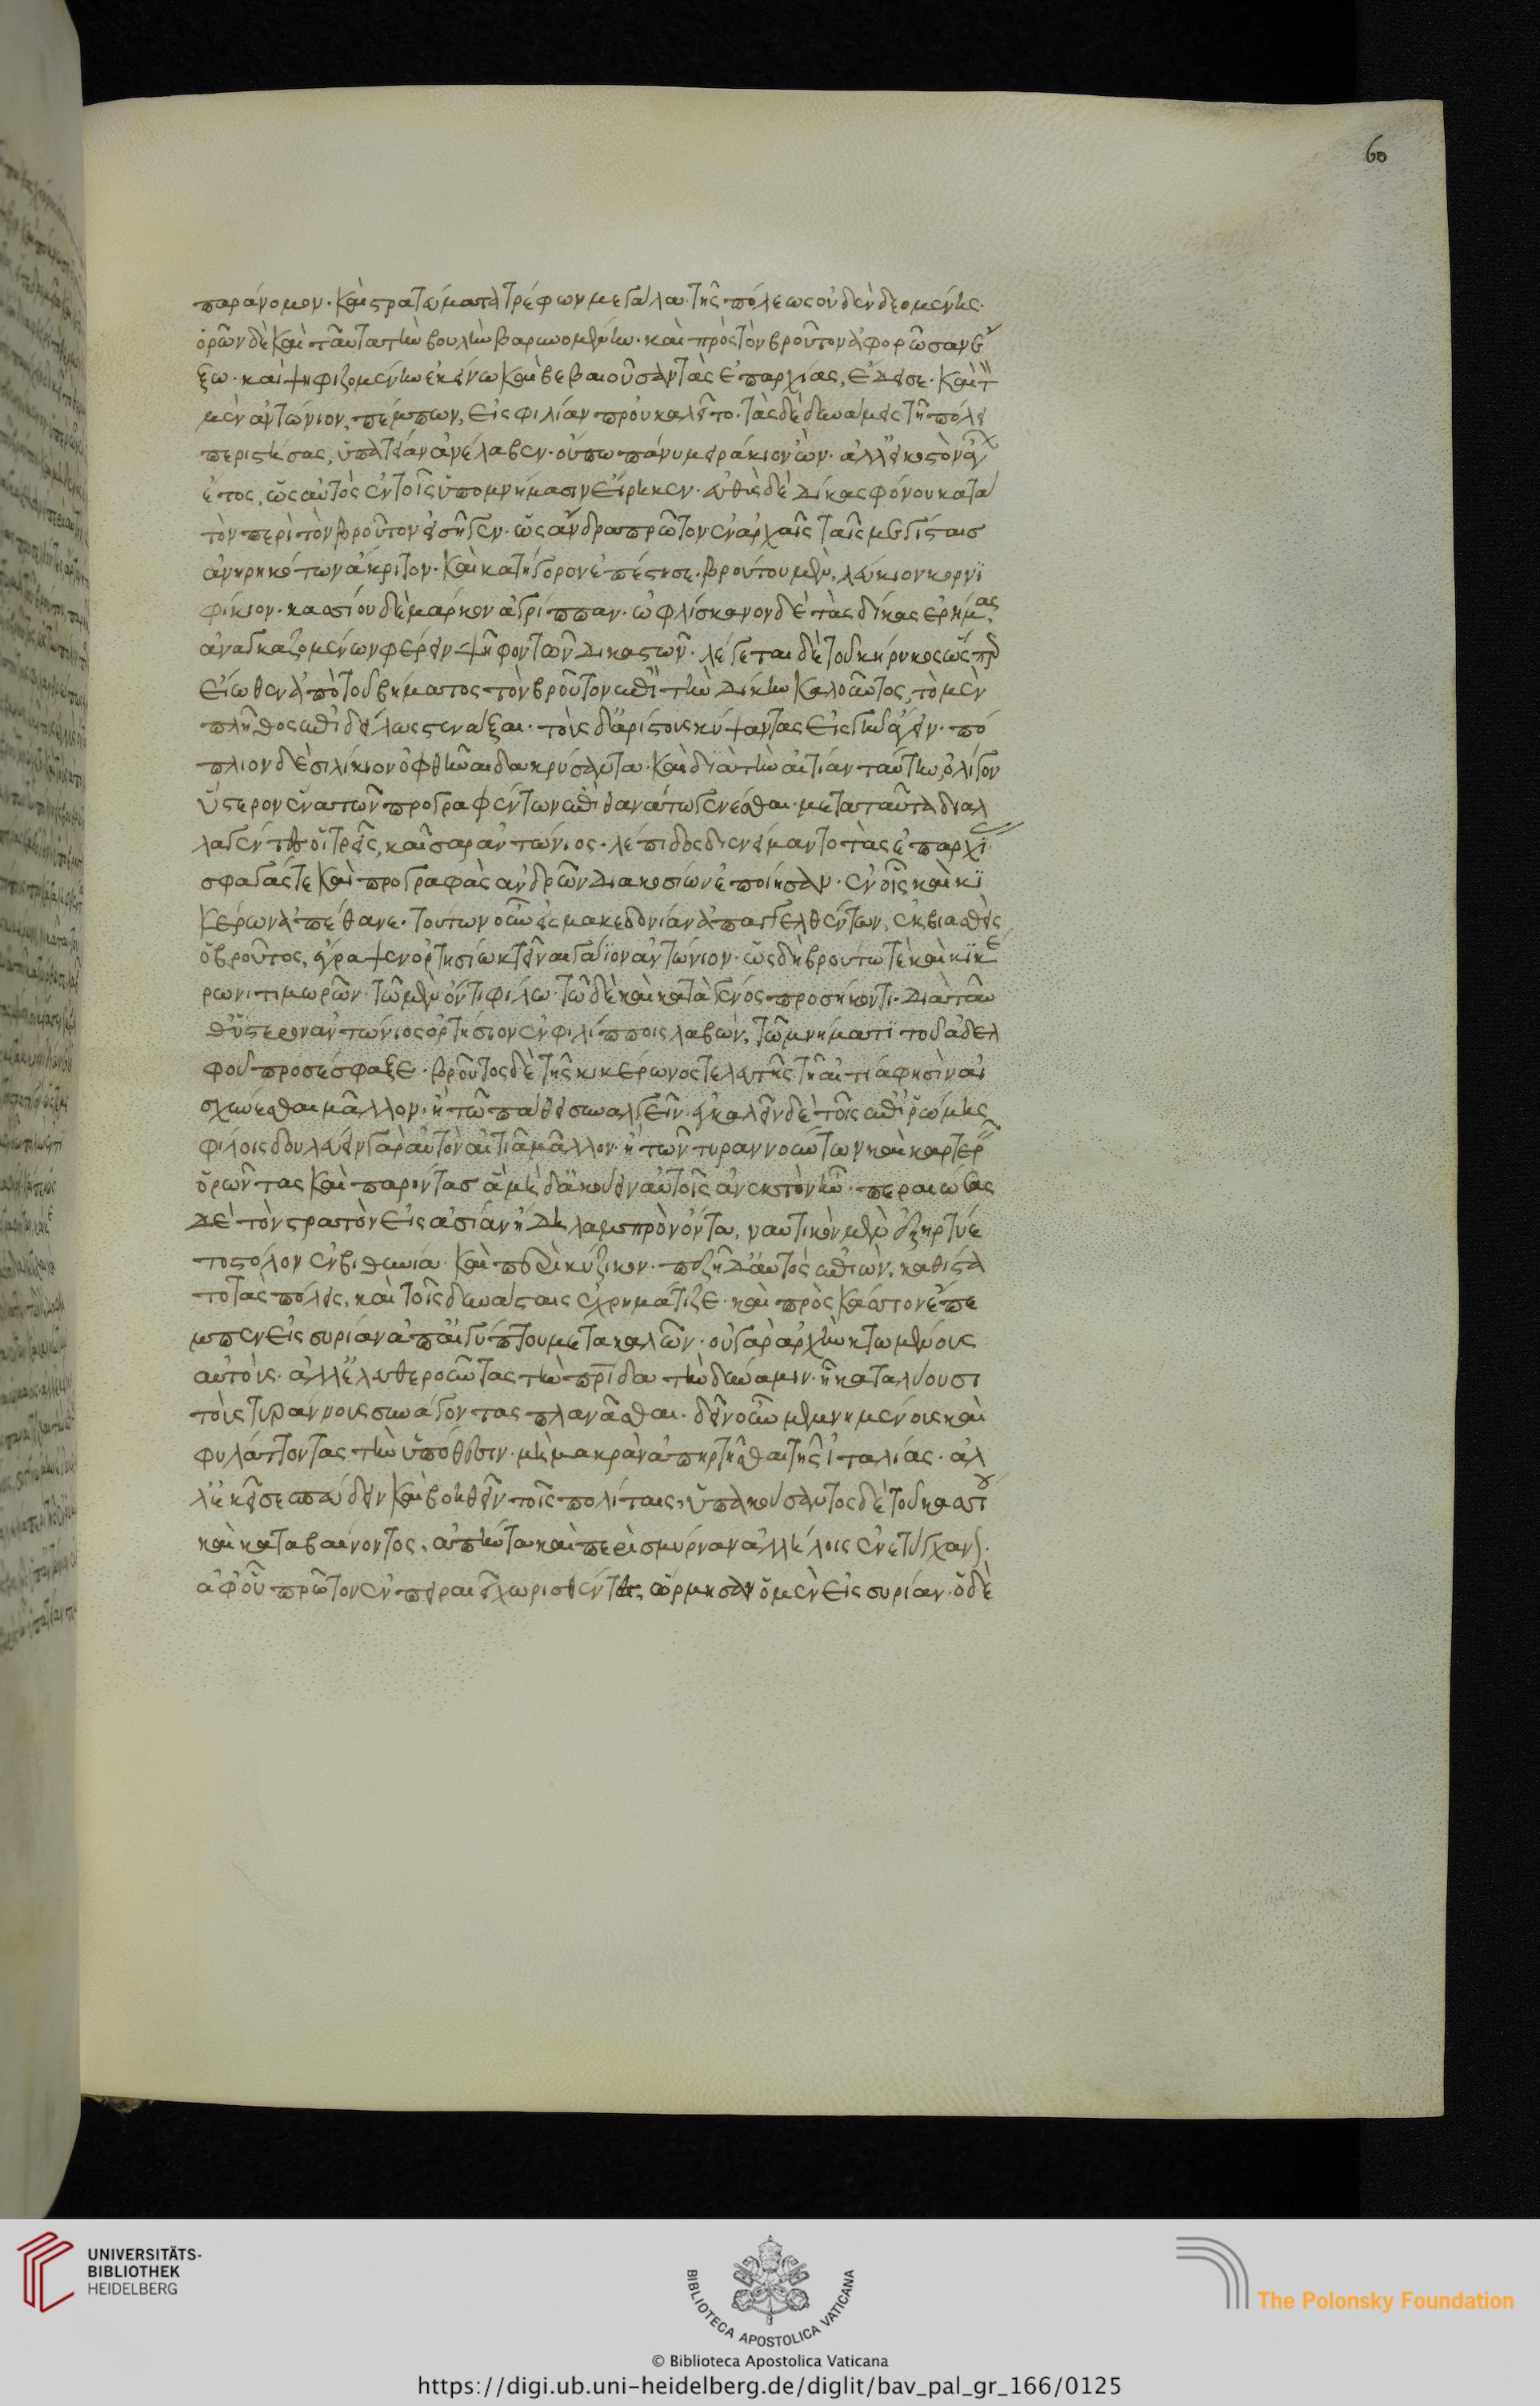 60
παράνομον· καὶ στρατεύματα τρέφων μεγάλα τῆς πόλεως οὐδὲν δεομένης·
ὁρῶν δὲ καὶ ταῦτα τὴν βουλὴν βαρυνομένην· καὶ πρὸς τὸν βροῦτον ἀφορῶσαν ἔ
ξω· καὶ ψηφιζομένην ἐκείνω καὶ βεβαιοῦσαν τὰς ἐπαρχίας, ἔδεισε· καὶ τ
μὲν ἀντώνιον, πέμπων, εἰς φιλίαν προὐκαλεῖτο· τὰς δὲ δυνάμεις τῆ πόλει
περιστήσας, ὑπατείαν ἀνέλαβεν· οὔπω πάνυ μειράκιον ὢν· ἀλλ' εἰκοστὸν ἄγ
ἔτος, ὡς αὐτὸς ἐν τοῖς ὑπομνήμασιν εἴρηκεν· εὐθὺς δὲ δίκας φόνου κατὰ
τῶν περὶ τὸν βροῦτον εἰσῆγεν· ὡς ἄνδρα πρῶτον ἐν ἀρχαῖς ταῖς μεγίσταισ
ἀνηρηκότων ἄκριτον· καὶ κατήγορον ἐπέστησε· βρούτου μὲν, λεύκιον κορνϊ
φίκιον· κασσίου δὲ μάρκον ἀγρίππαν· ὠφλίσκανον δὲ τὰς δίκας ἐρήμας,
ἀναγκαζομένων φέρειν ψῆφον τῶν δικαστῶν· λέγεται δὲ τοῦ κήρυκος ὥσπερ
εἰώθεν ἀπὸ τοῦ βήματος τὸν βροῦτον ἐπὶ τὴν δίκην καλοῦντος, τὸ μὲν
πλῆθος ἐπιδήλως στενάξαι· τοὺς δ' ἀρίστους κύψαντας εἰς γῆν ἄγειν· πό
πλιον δὲ σιλίκιον ὀφθῆναι δακρύσαντα· καὶ διὰ τὴν αἰτίαν ταύτην, ὀλίγον
ὕστερον ἕνα τῶν προγραφέντων ἐπὶ θανάτω γενέσθαι· μετὰ ταῦτα διαλ
λαγέντες οἱ τρεῖς, καῖσαρ ἀντώνιος· λέπιδος διενείμαντο τὰς ἐπαρχί
σφαγάς τε καὶ προγραφὰς ἀνδρῶν διακοσίων ἐποίησαν· ἐν οἷς καὶ κϊ
κέρων ἀπέθανε· τούτων οὖν εἰς μακεδονίαν ἀπαγγελθέντων, ἐκβιασθεὶς
ὁ βροῦτος, ἔγραψεν ὁρτησίω κτεῖναι γάϊον ἀντώνιον· ὡς δὴ βρούτω τε καὶ κικέ
ρωνι τιμωρῶν· τῶ μὲν ὄντι φίλω· τῶ δὲ καὶ κατὰ γένος προσήκοντι· διὰ ταῦ
θ' ὕστερον ἀντώνιος ὁρτήσιον ἐν φιλίπποις λαβὼν, τῶ μνήματι τοῦ ἀδελ
φοῦ προσέσφαξε· βροῦτος δὲ τῆς κικέρωνος τελευτῆς τῆ αἰτία φησὶν αἰ
σχύνεσθαι μᾶλλον· ἢ τῶ πάθει συναλγεῖν· ἐγκαλεῖν δὲ τοῖς ἐπὶ ῥώμης
φίλοις δουλεύειν γὰρ αὐτῶν αἰτία μᾶλλον· ἢ τῶν τυραννούντων καὶ καρτερ
ὁρῶντας καὶ παρόντας ἃ μὴ δ' ἀκούειν αὐτοῖς ἀνεκτὸν ἦν· περαιώσας
δὲ τὸν στρατὸν εἰς ἀσίαν ἤδη λαμπρὸν ὄντα, ναυτικὸν μὲν ἐξηρτύε
το στόλον ἐν βιθυνία· καὶ περὶ κύζικον· πεζῆ δ' αὐτὸς ἐπιὼν, καθίστα
το τὰς πόλεις, καὶ τοῖς δυνάσταις ἐχρημάτιζε· καὶ πρὸς κάσσιον ἔπε
μπεν εἰς συρίαν ἀπ' αἰγύπτου μετακαλῶν· οὐ γὰρ ἀρχὴν κτωμένους
αὐτοὺς· ἀλλ' ἐλευθεροῦντας τὴν πατρίδα τὴν δύναμιν· ἧ καταλύουσι
τοὺς τυράννους συνάγοντας πλανᾶσθαι· δεῖν οὖν μεμνημένους καὶ
φυλάττοντας τὴν ὑπόθεσιν· μὴ μακρὰν ἀπηρτῆσθαι τῆς ἰταλίας· ἀλ
λ' ἐκεῖσε σπεύδειν καὶ βοηθεῖν τοῖς πολίταις, ὑπακούσαντος δὲ τοῦ κασσίου
καὶ καταβαίνοντος, ἀπήντα καὶ περὶ σμύρναν ἀλλήλοις ἐνετύγχανον·
ἀφ' οὗ πρῶτον ἐν πειραιεῖ χωρισθέντες, ὥρμησαν ὁ μὲν εἰς συρίαν· ὁ δὲ
UNIVERSITÄTS-
BIBLIOTHEK
HEIDELBERG
BIBLIOTECA APOSTOLICA VATICANA
The Polonsky Foundation
© Biblioteca Apostolica Vaticana
https://digi.ub.uni-heidelberg.de/diglit/bav_pal_gr_166/0125